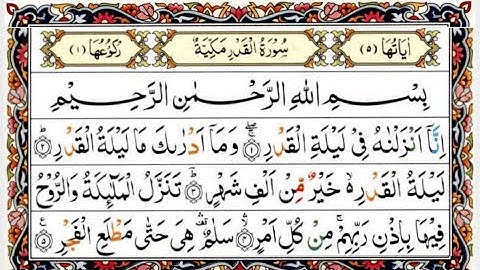 اٰيَاتُهَا (٥) سُوْرَةُ الْقَدْرِ مَكِّيَّةٌ رُكُوْعُهَا (١)
بِسْمِ اللهِ الرَّحْمٰنِ الرَّحِيْمِ
اِنَّاۤ اَنْزَلْنٰهُ فِيْ لَيْلَةِ الْقَدْرِ ۝١ وَمَاۤ اَدْرٰىكَ مَا لَيْلَةُ الْقَدْرِ ۝٢
لَيْلَةُ الْقَدْرِ ۙ خَيْرٌ مِّنْ اَلْفِ شَهْرٍ ۝٣ تَنَزَّلُ الْمَلٰٓئِكَةُ وَالرُّوْحُ
فِيْهَا بِاِذْنِ رَبِّهِمْ ۚ مِنْ كُلِّ اَمْرٍ ۝٤ سَلٰمٌ ۛ هِيَ حَتّٰى مَطْلَعِ الْفَجْرِ ۝٥